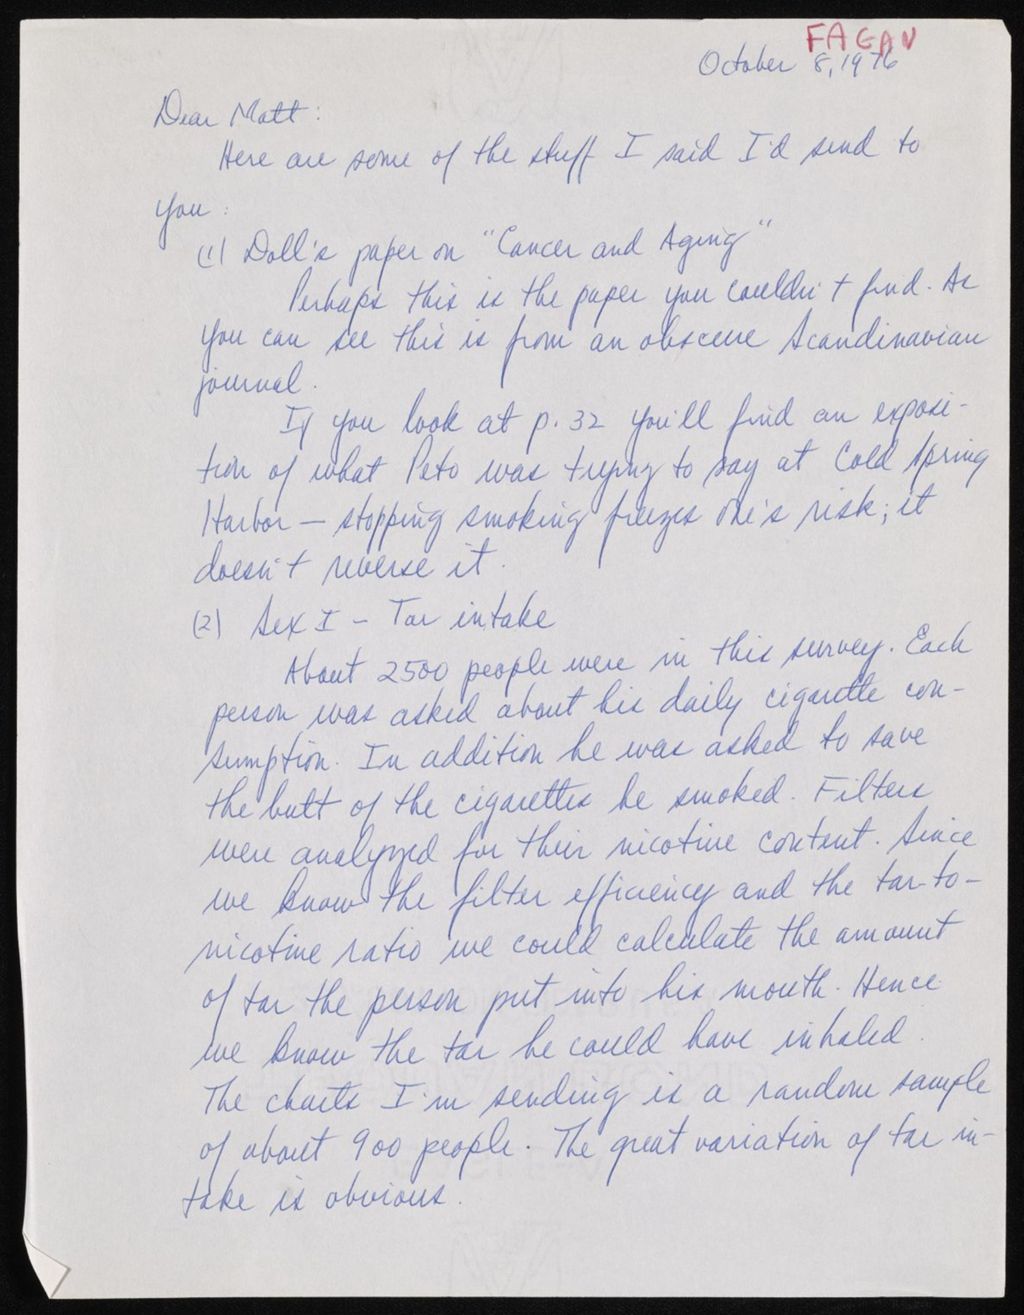 FAGAN
October 8, 1976
Dear Matt:
Here are some of the stuff I said I'd send to
you:
(1) Doll's paper on "Cancer and Aging"
Perhaps this is the paper you couldn't find. As
you can see this is from an obscure Scandinavian
journal.
If you look at p. 32 you'll find an exposi-
tion of what Peto was trying to say at Cold Spring
Harbor — stopping smoking freezes one's risk; it
doesn't reverse it.
(2) Sex I - Tar intake
About 2500 people were in this survey. Each
person was asked about his daily cigarette con-
sumption. In addition he was asked to save
the butt of the cigarettes he smoked. Filters
were analyzed for their nicotine content. Since
we know the filter efficiency and the tar-to-
nicotine ratio we could calculate the amount
of tar the person put into his mouth. Hence
we know the tar he could have inhaled.
The charts I'm sending is a random sample
of about 900 people. The great variation of tar in-
take is obvious.